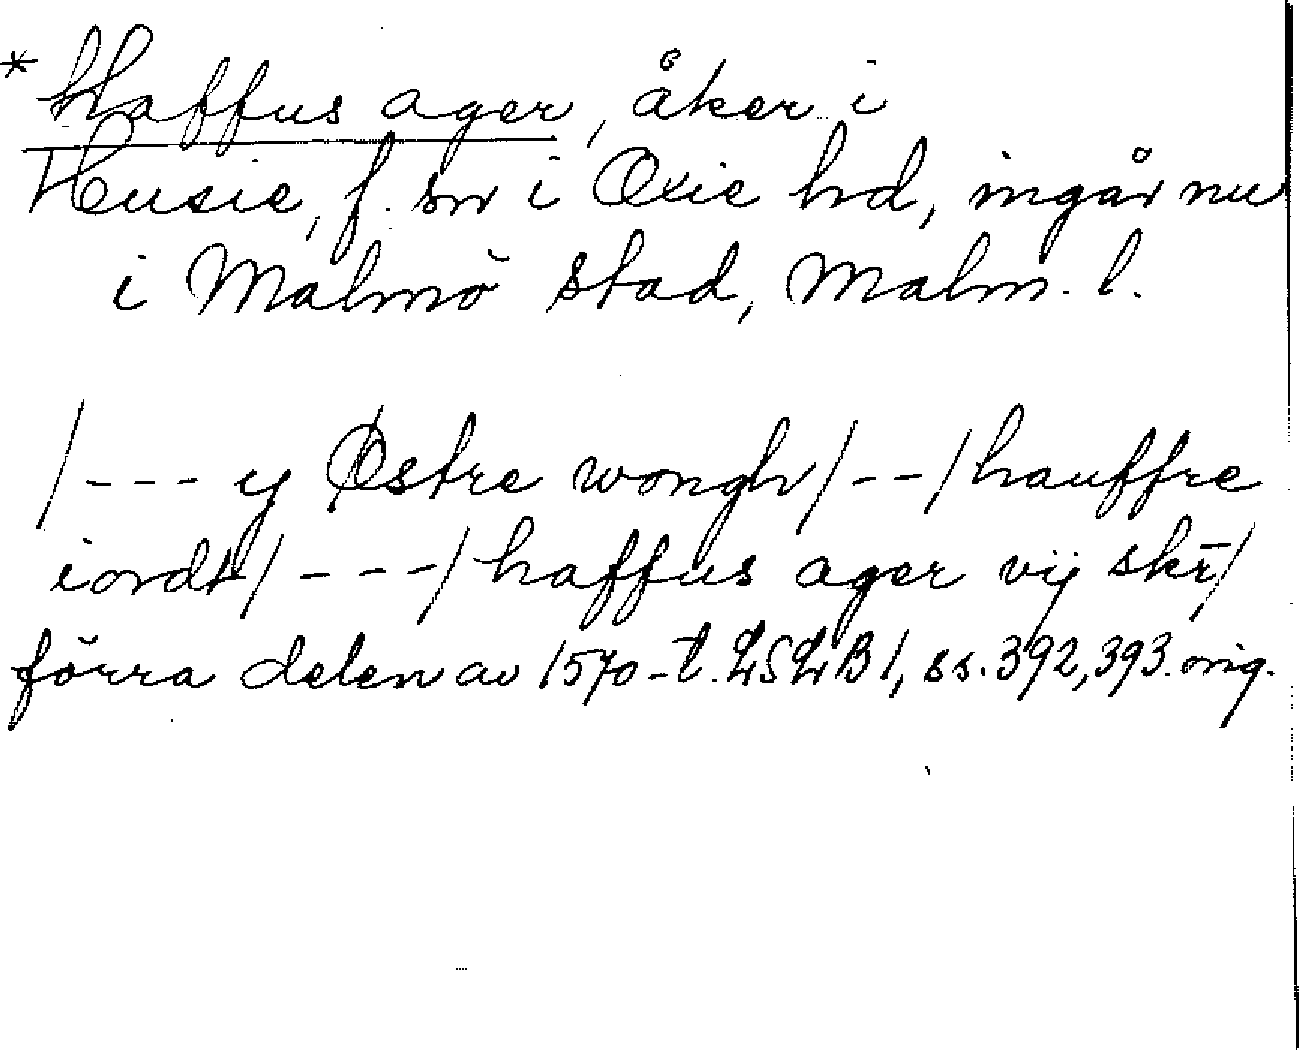 * Haffus ager, åker i
Husie, f. sn i Oxie hd, ingår nu
i Malmö stad, Malm. l.
/--- y Østre wongh/--/hauffre
iordt/---/haffus ager vij skr̄/
förra delen av 1570-t. LSLB 1, ss. 392, 393. orig.